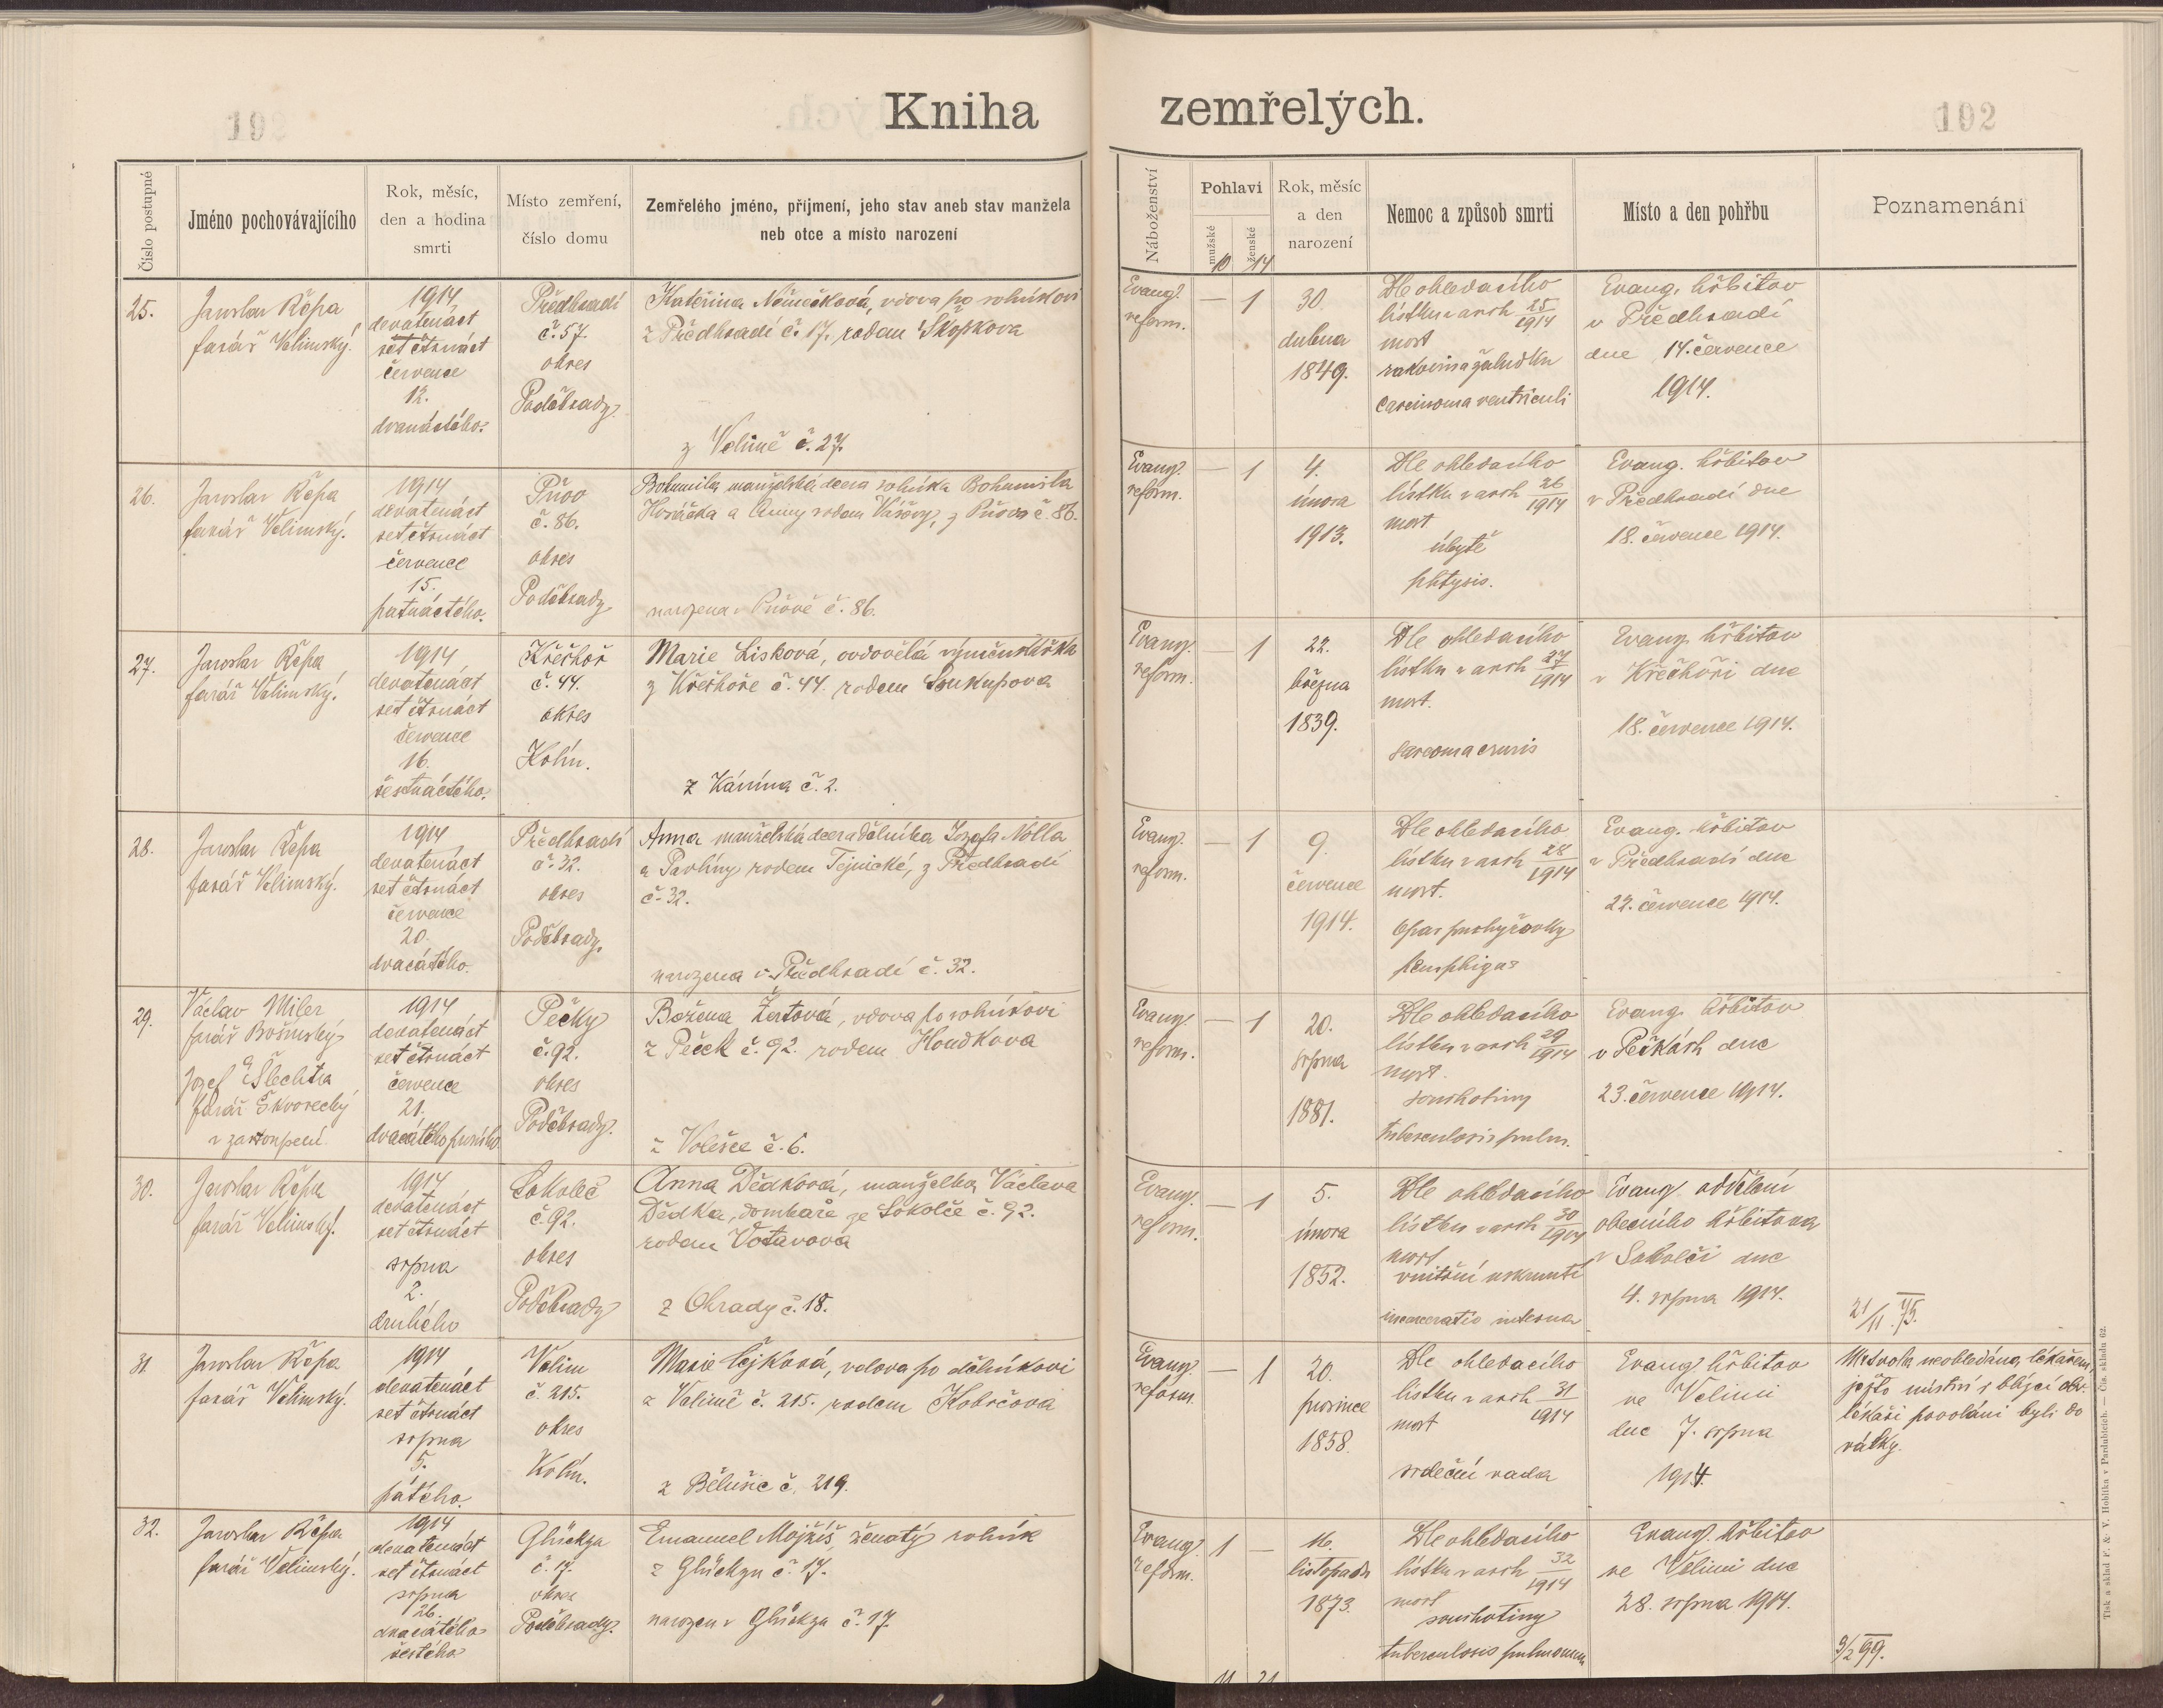 Kniha zemřelých.
102
Číslo postupné
Jméno pochovávajícího
Rok, měsíc,
den a hodina
smrti
Místo zemření,
číslo domu
Zemřelého jméno, příjmení, jeho stav aneb stav manžela
neb otce a místo narození
Náboženství
Pohlaví
mužské
ženské
10 14
Rok, měsíc
a den
narození
Nemoc a způsob smrti
Místo a den pohřbu
Poznamenání
25.
Jaroslav Řepa
farář Velimský.
1914
devatenáct
set čtrnáct
července
12.
dvanáctého.
Předhradí
č. 57.
okres
Poděbrady.
Kateřina Němečková, vdova po rolníkovi
z Předhradí č. 17. rodem Škopkova
z Velimě č. 27.
Evang.
reform.
— 1
30.
dubna
1849.
Dle ohledacího
lístku v arch 25/1914
mort
rakovina žaludku
Carcinoma ventriculi
Evang. hřbitov
v Předhradí
dne 14. července
1914.
26.
Jaroslav Řepa
farář Velimský.
1914
devatenáct
set čtrnáct
července
15.
patnáctého.
Pňov
č. 86.
okres
Poděbrady
Bohumila manželská dcera rolníka Bohumila
Horáčka a Anny rodem Vávrovy, z Pňova č. 86.
narozena v Pňově č. 86.
Evang.
reform.
— 1
4.
února
1913.
Dle ohledacího
lístku v arch 26/1914
mort
úbytě
phtysis.
Evang. hřbitov
v Předhradí dne
18. července 1914.
27.
Jaroslav Řepa
farář Velimský.
1914
devatenáct
set čtrnáct
července
16.
šestnáctého.
Křečhoř
č. 44.
okres
Kolín.
Marie Lisková, ovdovělá výměnkářka
z Křečhoře č. 44. rodem Soukupova
z Kánína č. 2.
Evang.
reform.
— 1
22.
března
1839.
Dle ohledacího
lístku v arch 27/1914
mort.
sarcoma cruris
Evang. hřbitov
v Křečhoři dne
18. července 1914.
28.
Jaroslav Řepa
farář Velimský.
1914
devatenáct
set čtrnáct
července
20.
dvacátého.
Předhradí
č. 32.
okres
Poděbrady.
Anna manželská dcera dělníka Josefa Nolla
a Pavlíny rodem Tejnické, z Předhradí
č. 32.
narozena v Předhradí č. 32.
Evang.
reform.
— 1
9.
července
1914.
Dle ohledacího
lístku v arch 28/1914
mort.
Opar puchýřovitý
pemphigus
Evang. hřbitov
v Předhradí dne
22. července 1914.
29.
Václav Miler
farář Bošínský
a
Josef Šlechta
farář Škvorecký
v zastoupení
1914
devatenáct
set čtrnáct
července
21.
dvacátého prvního
Pečky
č. 92.
okres
Poděbrady.
Božena Žertová, vdova po rolníkovi
z Peček č. 92. rodem Houdkova
z Volešce č. 6.
Evang.
reform.
— 1
20.
srpna
1881.
Dle ohledacího
lístku v arch 29/1914
mort.
souchotiny
tuberculosis pulm.
Evang. hřbitov
v Pečkách dne
23. července 1914.
30.
Jaroslav Řepa
farář Velimský.
1914
devatenáct
set čtrnáct
srpna
2.
druhého
Sokoleč
č. 92.
okres
Poděbrady
Anna Dědková, manželka Václava
Dědka, domkaře ze Sokolče č. 92.
rodem Votavova
z Ohrady č. 18.
Evang.
reform.
— 1
5.
února
1852.
Dle ohledacího
lístku v arch 30/1914
mort
vnitřní uskřinutí
incarceratio interna
Evang. oddělení
obecního hřbitova
v Sokolči dne
4. srpna 1914.
21/11 75.
31.
Jaroslav Řepa
farář Velimský.
1914
devatenáct
set čtrnáct
srpna
5.
pátého.
Velim
č. 215.
okres
Kolín.
Marie Čejková, vdova po dělníkovi
z Velimě č. 215. rodem Kobrčova
z Bělušic č. 219.
Evang.
reform.
— 1
20.
prosince
1858.
Dle ohledacího
lístku v arch 31/1914
mort
srdeční vada
Evang. hřbitov
ve Velimi
dne 7. srpna
1914.
Mrtvola neohledána lékařem,
ježto místní i blízcí obv.
lékaři povoláni byli do
války.
32.
Jaroslav Řepa
farář Velimský.
1914
devatenáct
set čtrnáct
srpna
26.
dvacátého
šestého
Glückzu
č. 17.
okres
Poděbrady.
Emanuel Mojžíš ženatý rolník
z Glückzu č. 17.
narozen v Glückzu č. 17.
Evang.
reform.
1 —
16.
listopadu
1873.
Dle ohledacího
lístku v arch 32/1914
mort
souchotiny
tuberculosis pulmonum
Evang. hřbitov
ve Velimi dne
28. srpna 1914.
9/2 99.
11 21
Tisk a sklad F. & V. Hoblíka v Pardubicích. — Čís. skladu 62.